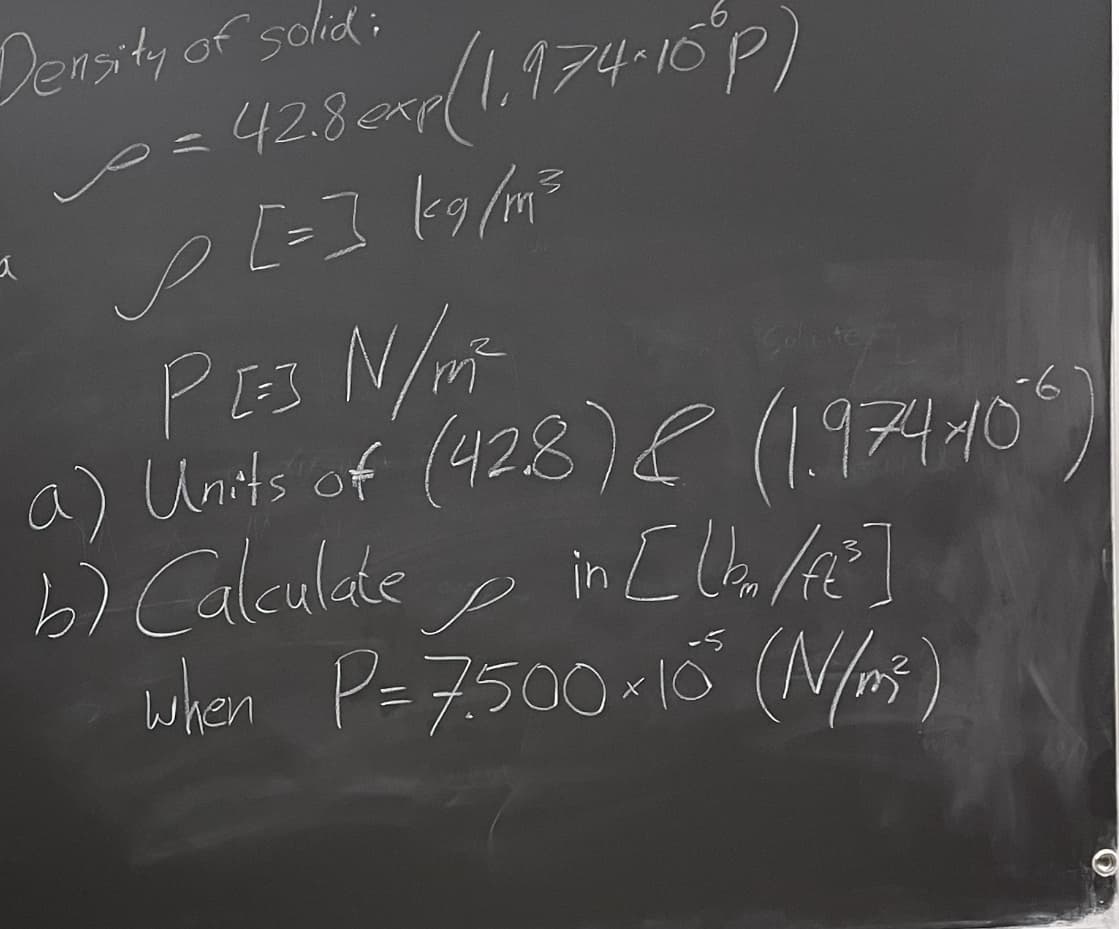 Density of solid:
ρ = 42.8 exp(1.974×10⁻⁶P)
ρ [=] kg/m³
a
P [=] N/m²
a) Units of (42.8) & (1.974×10⁻⁶)
b) Calculate ρ in [lbm/ft³]
when P = 7.500×10⁻⁵ (N/m²)